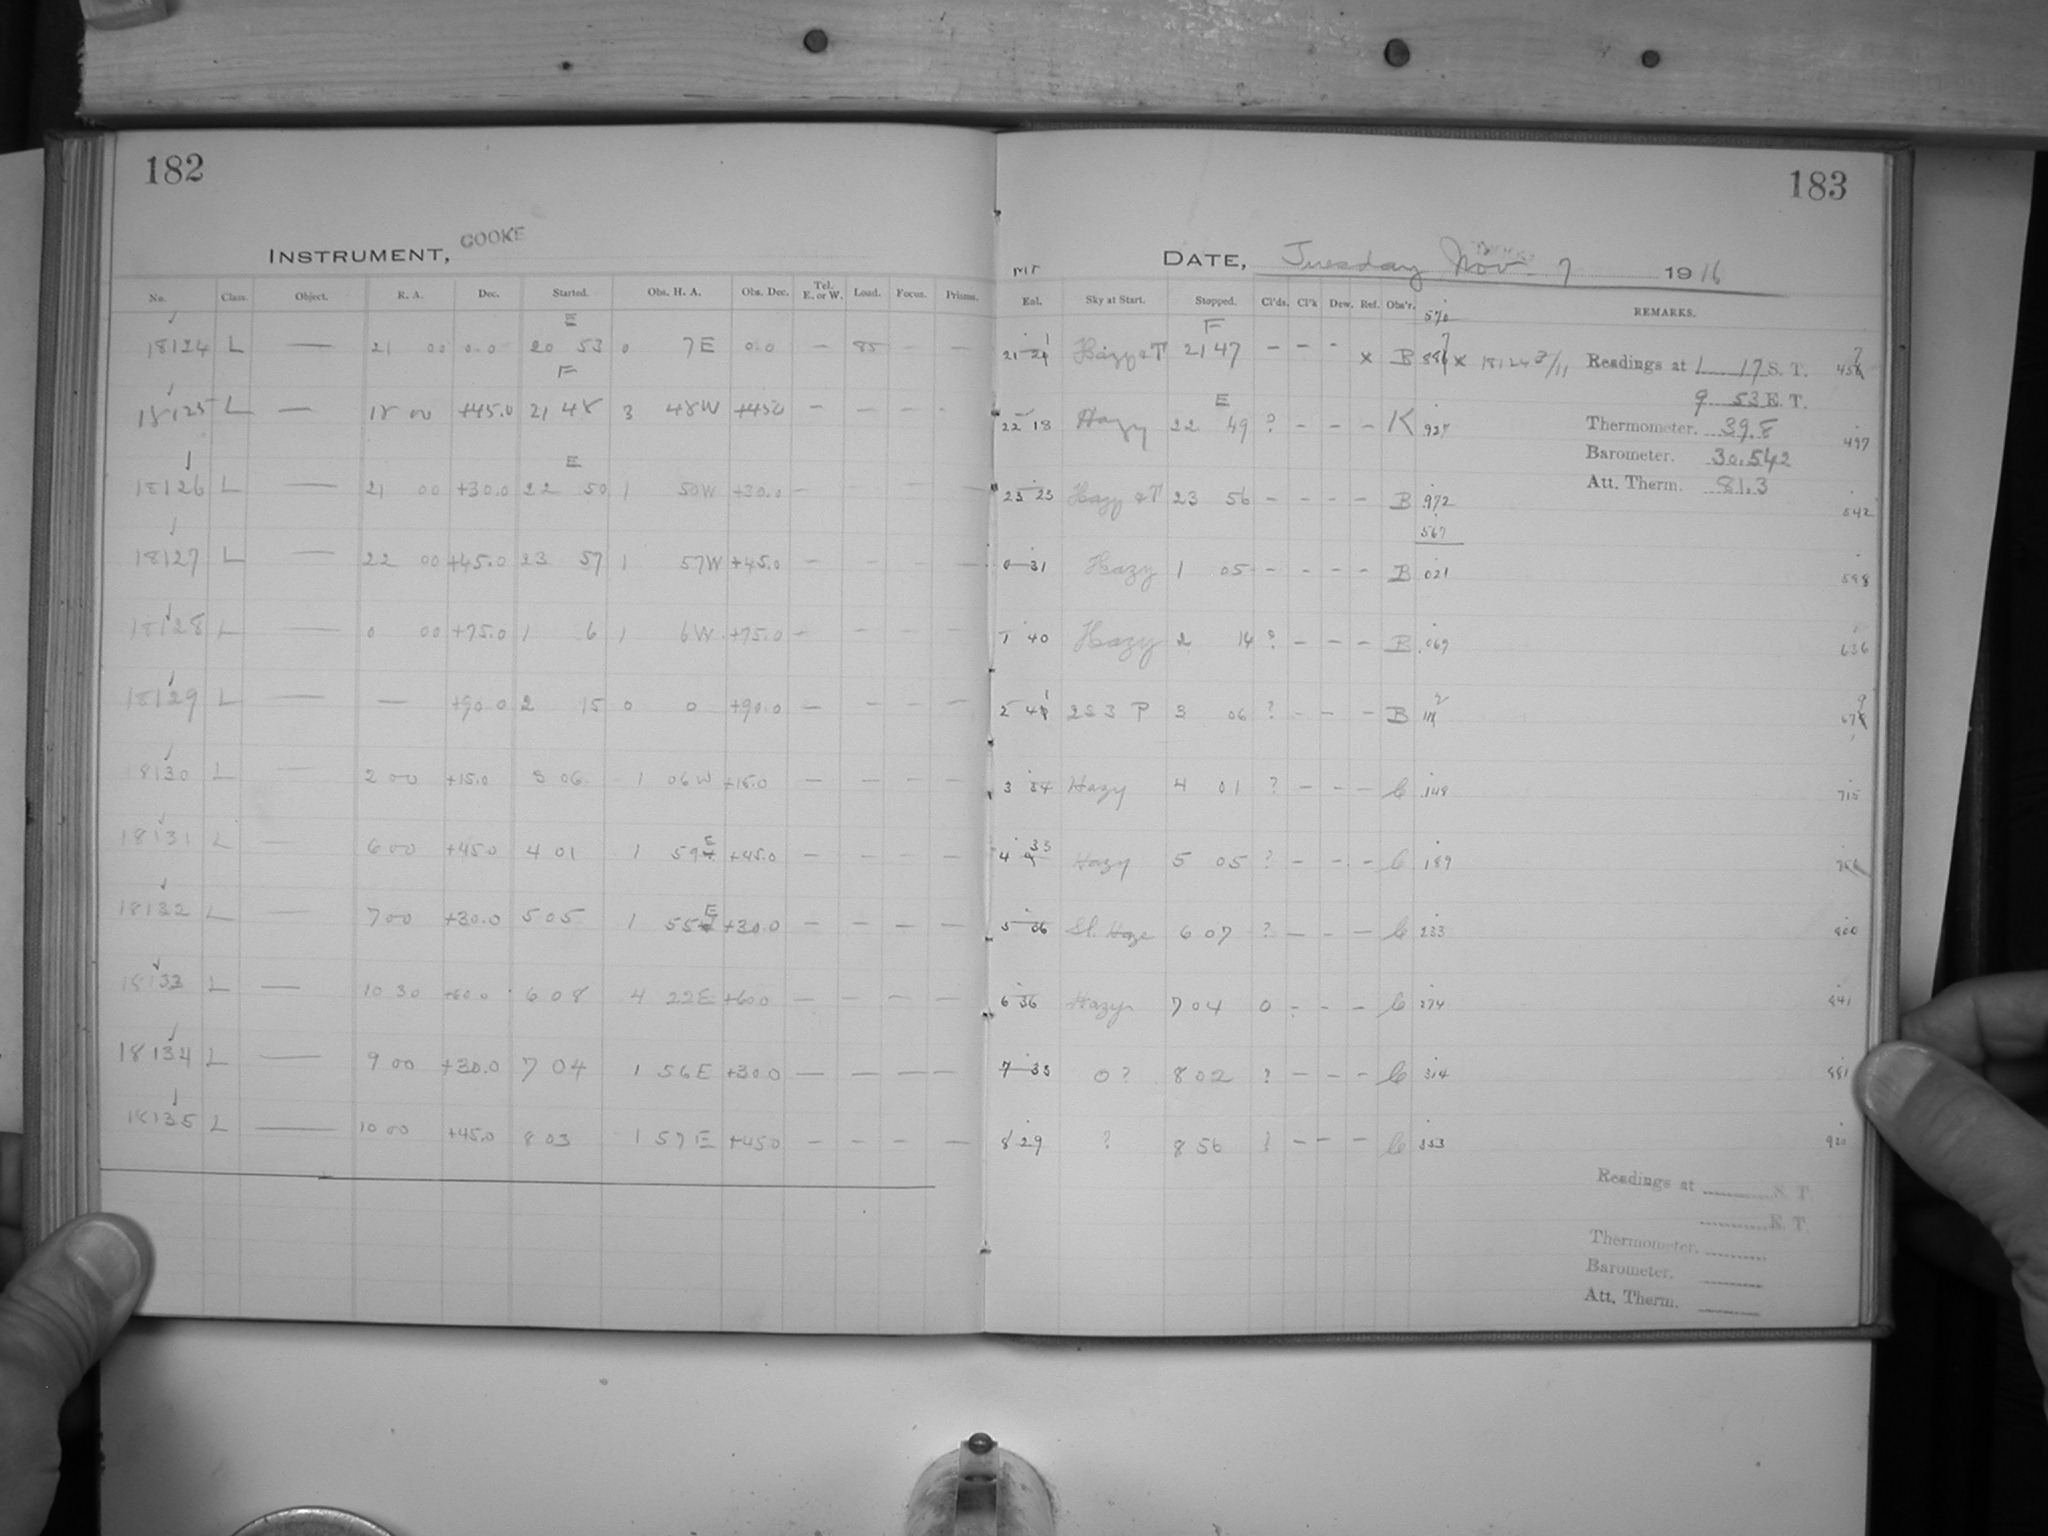 182
183
INSTRUMENT, COOKE
DATE, Tuesday Nov. 7 1916
No. Class. Object. R. A. Dec. Started. Obs. H. A. Obs. Dec. Tel. E. or W. Load. Focus. Prisms.
MT
Eol. Sky at Start. Stopped. Cl'ds. Cl'k Dew. Ref. Obs'r. REMARKS.
570
E F
18124 L — 21 00 0.0 20 53 0 7E 0.0 — 85 — — 21 Hazy & T 21 47 — — - x B x 18124 3/11
F E
18125 L — 18 00 +45.0 21 48 3 48W +450 — — — - 22 18 Hazy 22 49 ? — — — K .927 497
E
18126 L — 21 00 +30.0 22 50 1 50W +30.0 — — — 23 23 Hazy & T 23 56 — — — — B .972 542
567
18127 L — 22 00 +45.0 23 57 1 57W +45.0 — — — — 0 31 Hazy 1 05 — — — — B .021 598
18128 L — 0 00 +75.0 1 6 1 6W +75.0 — — — — 1 40 Hazy 2 14 ? — — — B .069 636
18129 L — — +90.0 2 15 0 0 +90.0 — — — — 2 2 S 3 P 3 06 ? — — — B
18130 L — 2 00 +15.0 3 06 1 06W +15.0 — — — — 3 34 Hazy 4 01 ? — — — C .148 715
18131 L — 6 00 +45.0 4 01 1 59E +45.0 — — — — 4 33 Hazy 5 05 ? — — — C .189
18132 L — 7 00 +30.0 5 05 1 55E +30.0 — — — — 5 36 Sl. Haze 6 07 ? — — — C 233 800
18133 L — 10 30 +60.0 6 08 4 22E +60.0 — — — — 6 36 Hazy 7 04 0 - - — C 274 841
18134 L — 9 00 +30.0 7 04 1 56E +30.0 — — — — 7 33 0? 8 02 ? — — — C 314 881
18135 L — 10 00 +45.0 8 03 1 57E +45.0 — — — — 8 29 ? 8 56 ? — — — C 353 920
Readings at 1 17 S. T.
9 53 E. T.
Thermometer. 39.8
Barometer. 30.542
Att. Therm. 81.3
Readings at S. T.
E. T.
Thermometer.
Barometer.
Att. Therm.